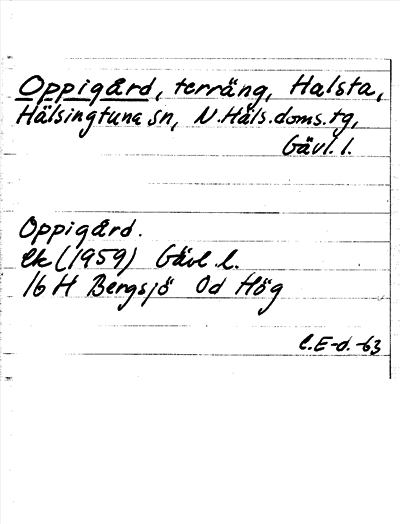 Oppigård, terräng, Halsta,
Hälsingtuna sn, N. Häls. doms. tg,
Gävl. l.
Oppigård.
ek (1959) Gävl. l.
16 H Bergsjö Od Hög
C.E-d.-63